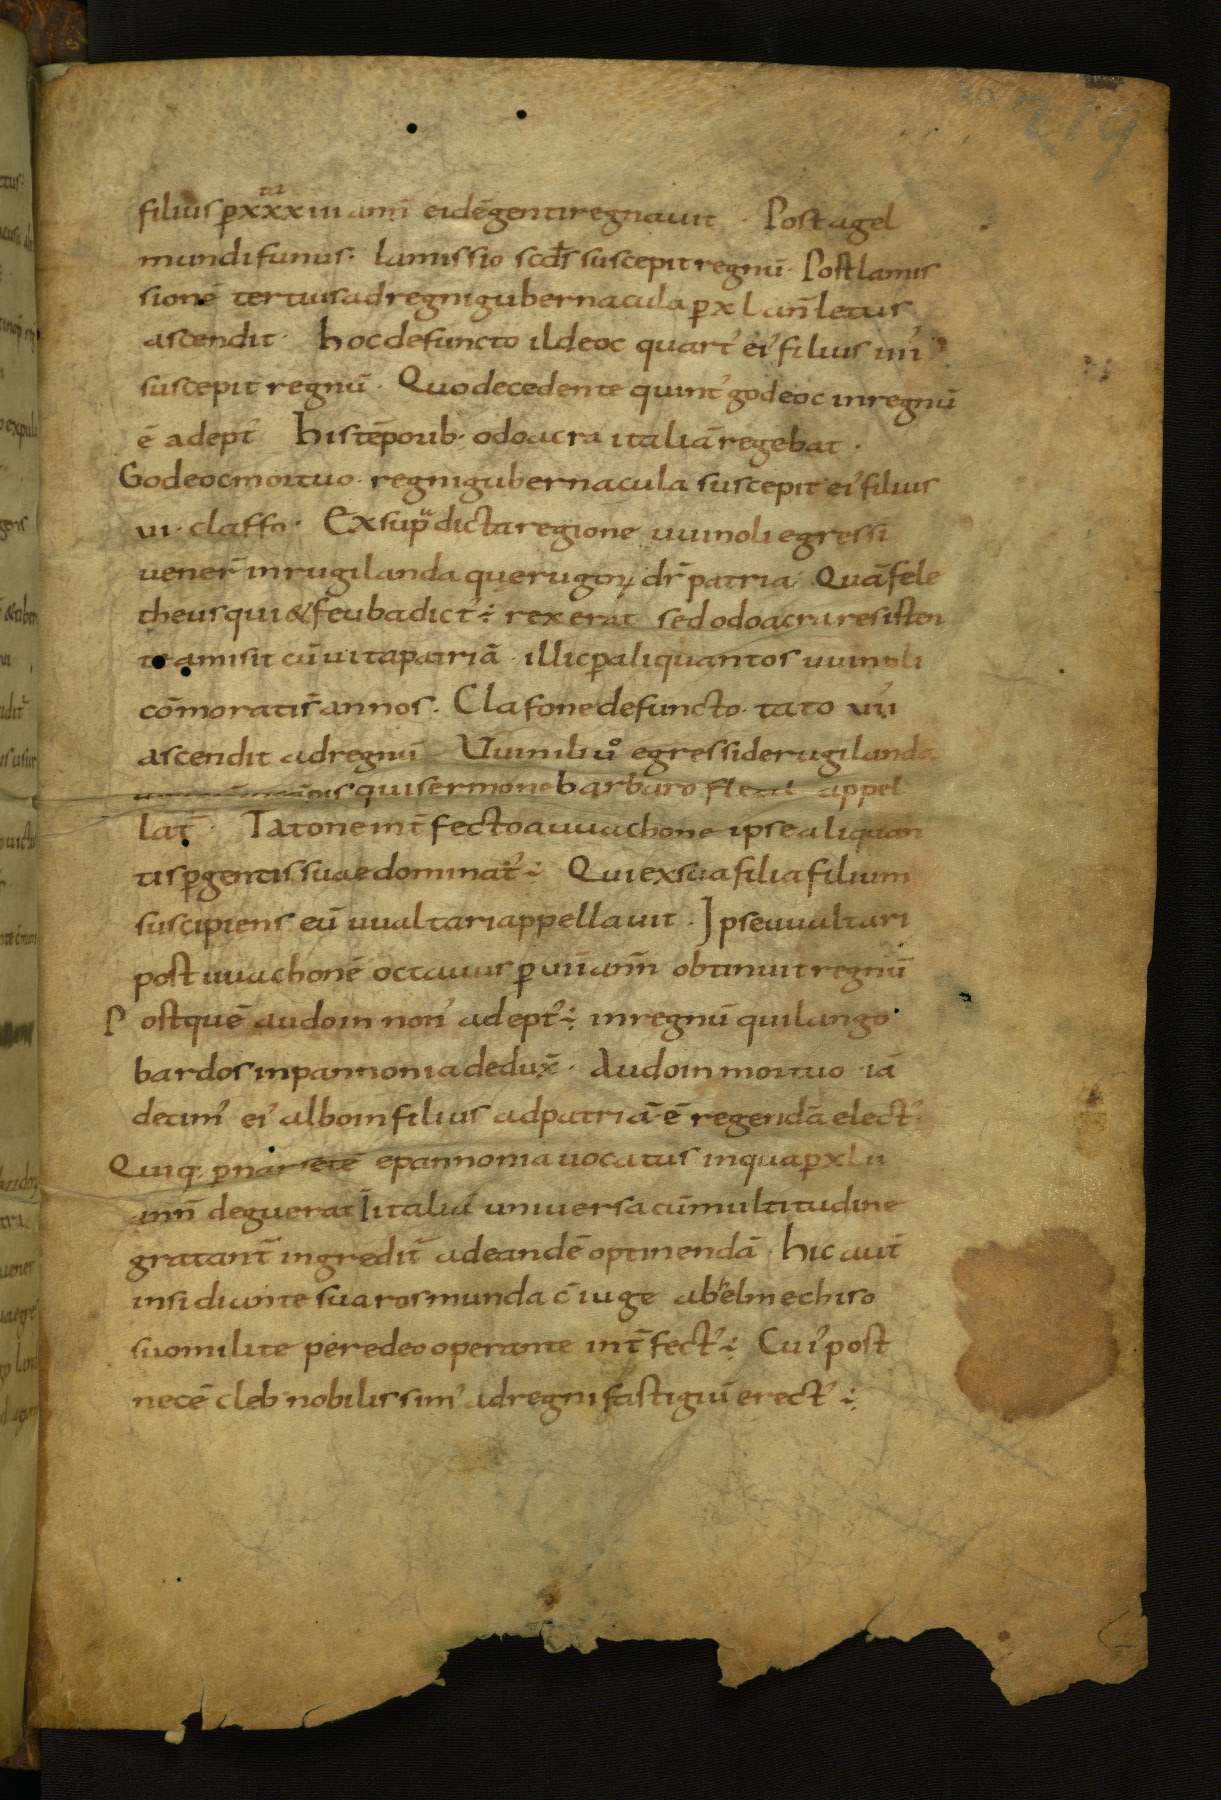 219
filius p xxxiii ann̄ eidē genti regnauit · Post agel
mundi funus · lamissio scd̄s suscepit regnū · Post lamis
sionē tertius ad regni gubernacula p xl an̄ letus
ascendit · hoc defuncto ildeoc quart' ei' filius iiii
suscepit regnū · Quo decedente quint' godeoc in regnū
ē adept' his tēporib; odoacra italiā regebat ·
Godeoc mortuo · regni gubernacula suscepit ei' filius
vi · claffo · Ex sup̄dicta regione uuinoli egressi
uener̄ in rugilanda quę rugorꝝ dr̄ patria · Quā fele
theus qui & feuba dicit' ÷ rex erat sed odoacra resisten
te amisit cū uita patriā · illic p aliquantos uuinoli
cōmorati s̄ annos · Clafone defuncto · tato vii
ascendit ad regnū Uuinili u° egressi de rugilanda
qui sermone barbaro appel
lat̄ · Tatone int̄fecto a uuachone ipse aliquan
tisp gentis suae dominat' ÷ Qui ex sua filia filium
suscipiens eū uualtari appellauit · Ipse uualtari
post uuachonē octauus p vii ann̄ obtinuit regnū
Post quē audoin non' adept' ÷ in regnū qui lango
bardos in pannonia dedux̄ · Audoin mortuo · iā
decim' ei' alboin filius ad patriā ē regendā elect'
Quiq; p narsetē e pannonia uocatus in qua p xlii
ann̄ deguerat italiā uniuersa cū multitudine
gratant̄ ingredit̄ ad eandē optinendā · hic aut̄
insidiante sua rosmunda c̄iuge ab helmechiso
suo milite peredeo operante int̄fect' ÷ Cui' post
necē cleb nobilissim' ad regni fastigiū erect' ÷